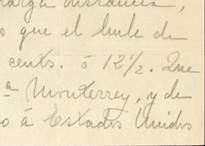 larga distancia,
s que el bule de
cents. ó 12½. Que
a Monterrey, y de
o á Estados Unidos